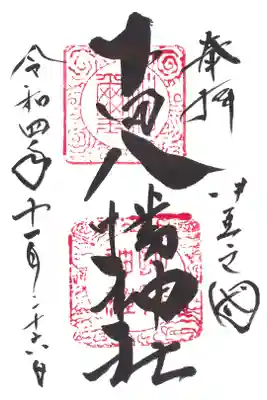 奉拝
伊豆之國
八幡神社
令和四年十一月二十六日